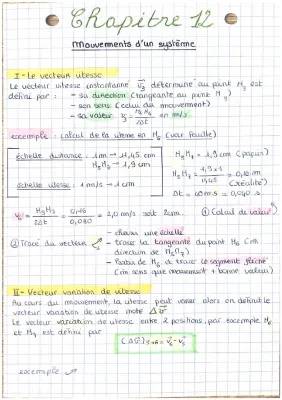 Chapitre 12
Mouvements d'un système
I - Le vecteur vitesse
Le vecteur vitesse instantanée v₃ déterminé au point M₃ est
défini par : - sa direction (tangente au point M₃)
- son sens (celui du mouvement)
- sa valeur v₃ = M₂M₄ / 2Δt en m/s
exemple : calcul de la vitesse en M₆ (voir feuille)
échelle distance : 1 m → 11,45 cm
→ 1,9 cm
échelle vitesse : 1 m/s → 1 cm
= 1,9 cm (papier)
= 0,16 m
(réalité)
Δt = 40 ms = 0,040 s
= 0,16 / 0,080 = 2,0 m/s soit 2 cm.
① Calcul de valeur
② Tracé du vecteur
- choisir une échelle
- tracer la tangente du point M₆
direction de
- tracer le segment fléché
sens que mouvement + bonne valeur)
II - Vecteur variation de vitesse
Au cours du mouvement, la vitesse peut varier alors on définit le
vecteur variation de vitesse noté Δv
Le vecteur variation de vitesse entre 2 positions, par exemple M₆
et est défini par
exemple